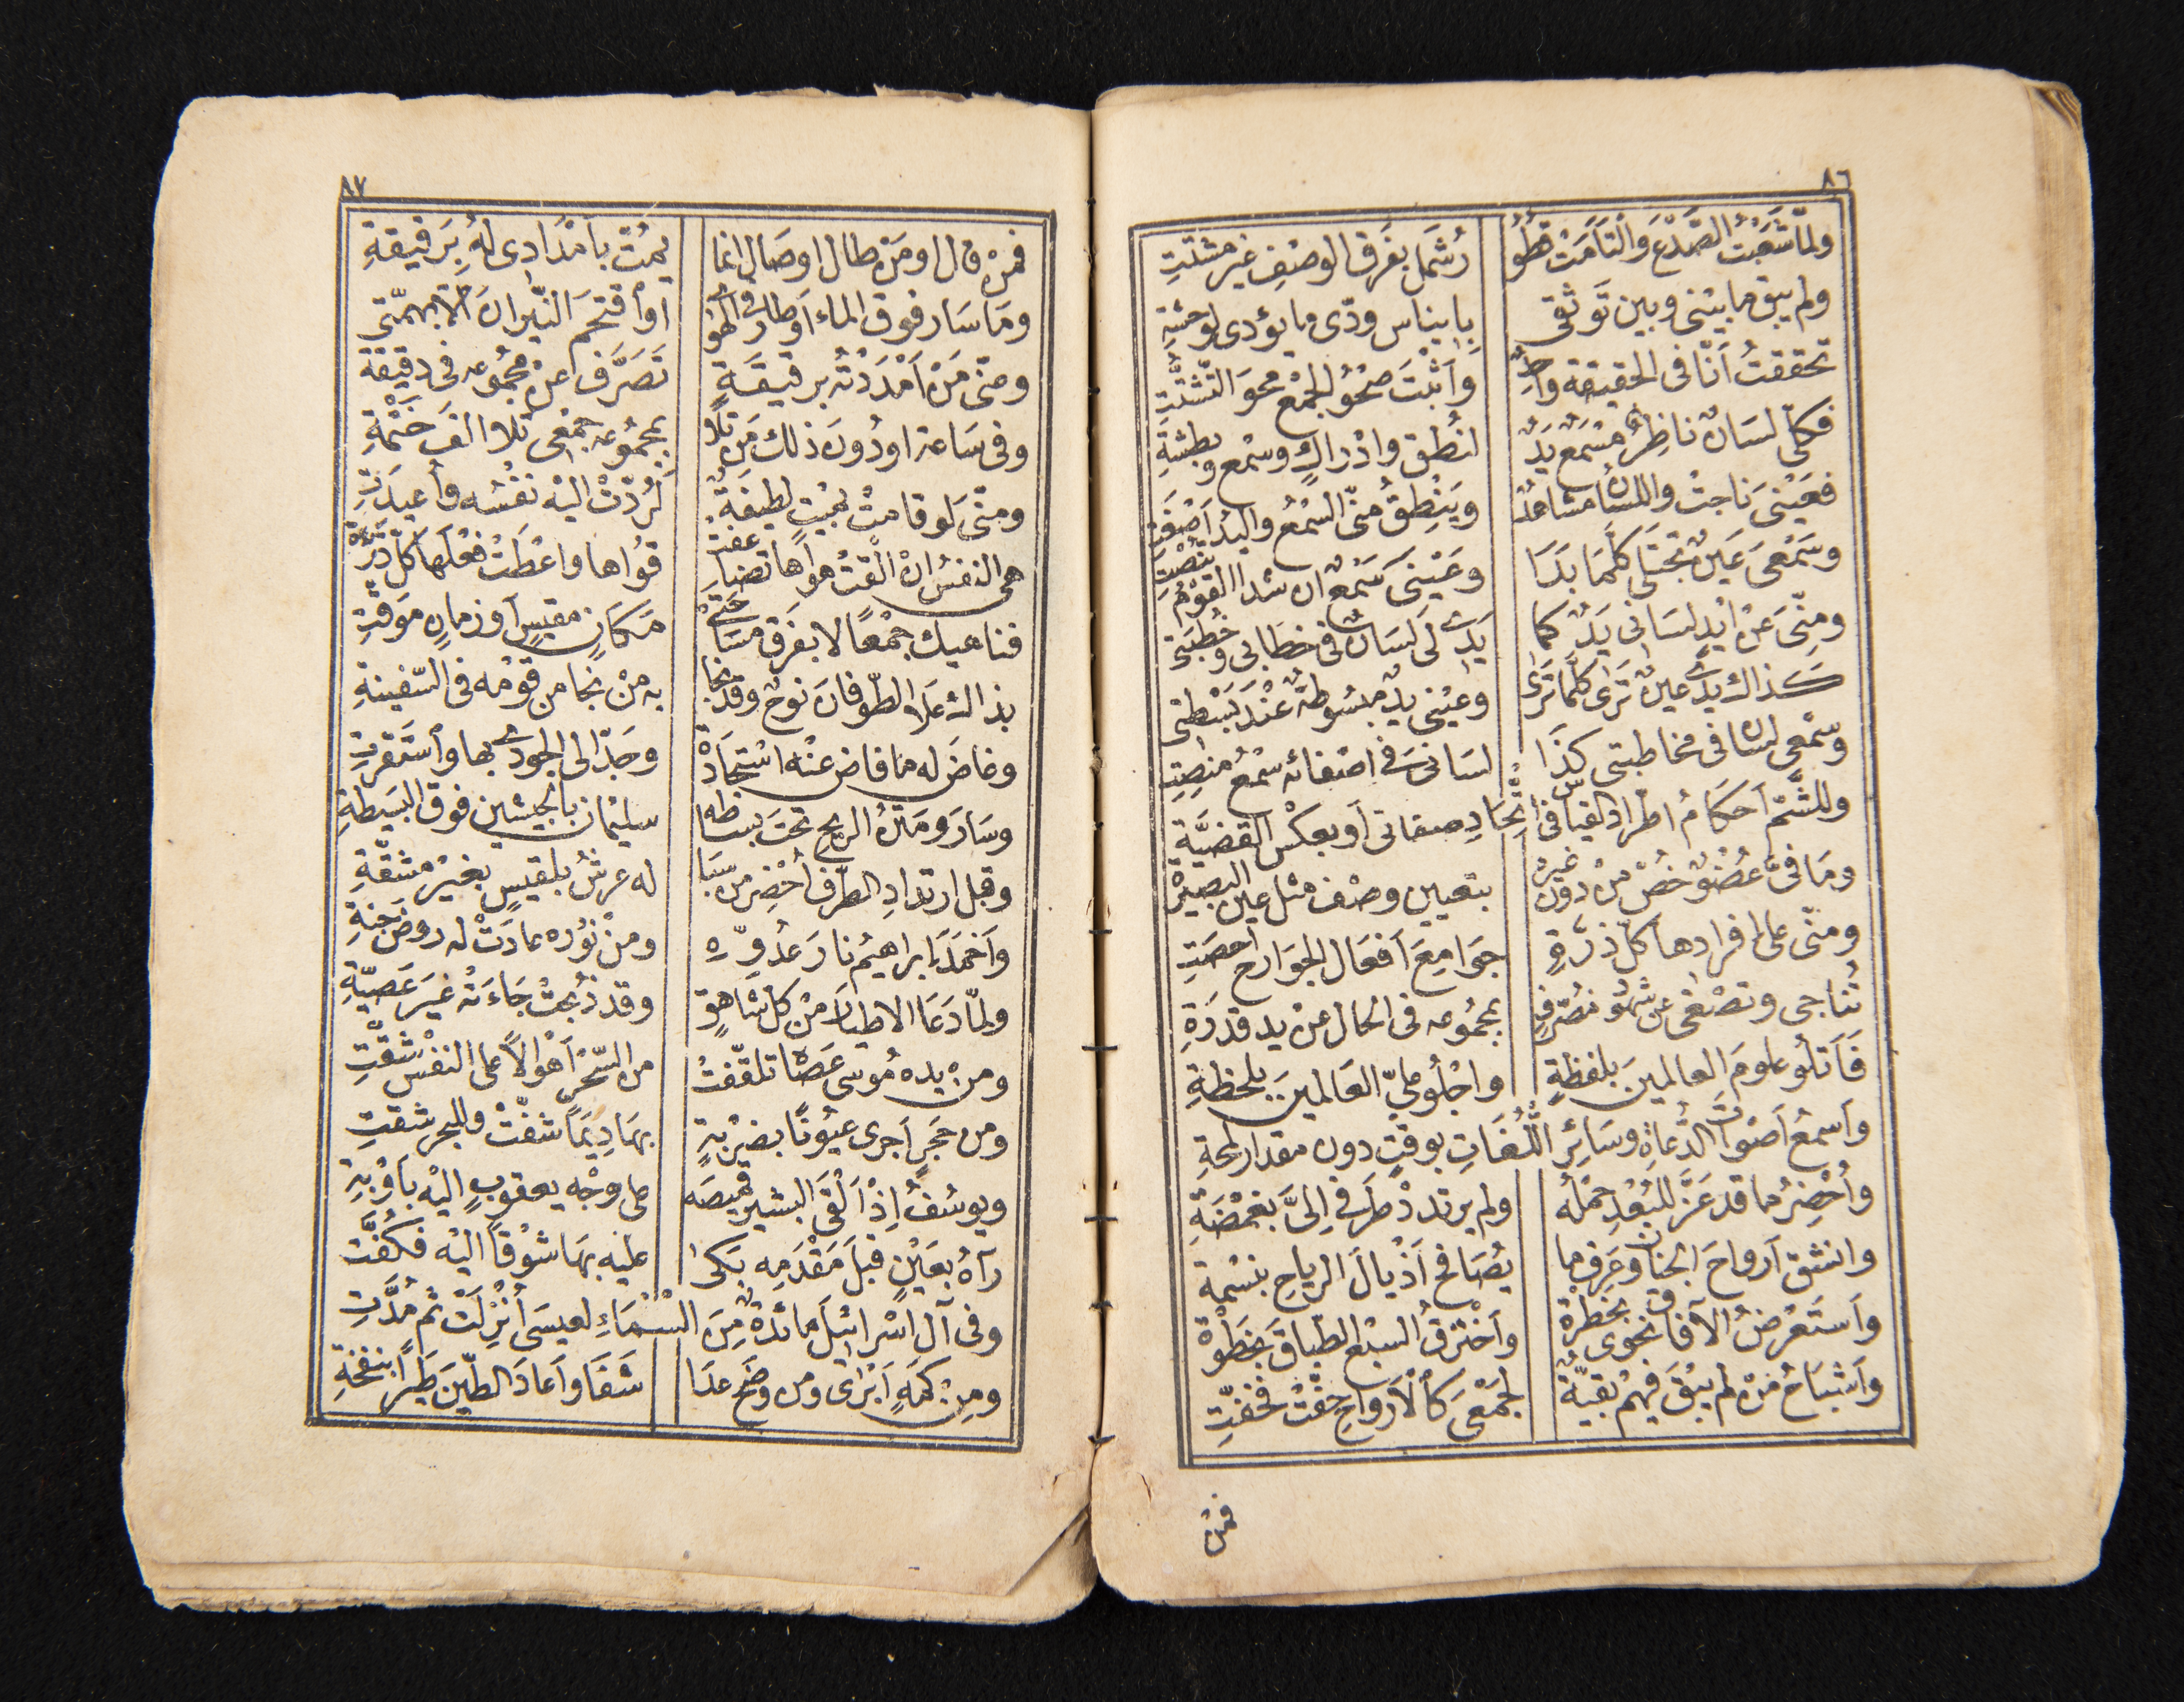 ٨٦
ولمّا شَعَبْتُ الصَّدْعَ وَالْتَأَمَتْ فُطُو رُ شَمْلٍ بفَرقِ الوصْفِ غيرِ مشتّتِ
ولم يبق ما بيْنى وبين تَوَثّقى بايناس ودّى ما يؤدى لوحشةِ
تحققتُ اَنّا فى الحقيقة واحِدٌ واَثْبَتَ صَحْوُ الجَمْعِ محوَ التّشَتُّتِ
فكلّى لسَانٌ ناظِرٌ مِسْمَعٌ يَدٌ لنُطْقٍ وادْراكٍ وسمْعٍ وبطشَةِ
فعَيْنىَ ناجتْ واللسانُ مشاهدٌ ويَنْطِقُ منّى السّمْعُ واليدُ اَصْغَتِ
وسَمْعىَ عَينٌ تَجْتَلى كلَّمَا بَدَا وعَيْنىَ سَمْعٌ ان شدا القوْمُ تنْصِتِ
ومنِّىَ عَنْ اَيْدٍ لسَانى يَدٌ كما يَدِى لىَ لسَانٌ فى خطَابى وخُطبَتى
كذاك يدى عينٌ تَرَى كلَّمَا تَرَى وعيْنى يدٌ مبسُوطةٌ عنْدَ بَسْطتى
وسمْعى لسانٌ فى مخاطبتى كذَا لسَانىَ فى اصْغائه سمْعُ منصِتِ
وللشَّمّ اَحكَامُ اطّرادِ القياسِ فى اتّحَادِ صفاتى اَو بعكْسِ القضيَّة
ومَا فىَّ عُضْوٌ خُصّ منْ دون غيرهْ بتعيين وصْف مثل عين البصيرةْ
ومنّى على افرادها كلّ ذرّةٍ جَوَامِعَ اَفعَال الجَوَارح اَحصَتِ
تُناجى وتصْغى عن شهُود مُصَرّفٍ بمجمُوعه فى الحال عنْ يد قدرَةِ
فَاَتلُو علومَ العالمينَ بلفظةٍ واجْلُو علىّ العَالمينَ بلحظةِ
وَاَسمعُ اَصْوَاتَ الدُّعاةِ وسَائِرَ اللُّغَاتِ بوقتٍ دون مقدار لمحةِ
وأُحْضِرُ ما قد عَزَّ للبُعْدِ حَمْلُه ولم يرتددْ طَرفى اِلىَّ بغمْضَةِ
وانشق اَرواحَ الجنان وعَرفَ ما يُصَافحُ اَذْيالَ الرياحِ بنسْمة
واَستَعْرضُ الآفاقَ نحوى بخطْرةْ واَخْترقُ السبْعَ الطبَاقَ بخَطوْةْ
واَشبَاحُ منْ لم يبْقَ فيهمْ بقيّةٌ لجَمْعى كَالْاَرواحِ حفّتْ فخفّتِ
فمنْ
٨٧
فمنْ قال او مَنْ طال او صَال انما يمُتّ باَمْدَادِى لهُ بِرَقيقةِ
ومَا سَار فوق الماء اَو طار فى الهوا اَو اقْتحَمَ النّيرانَ الّا بهمّتى
ومنّى مَنْ اَمْدَدْتُه برقيقَةٍ تَصَرَّفَ عنْ مجمُوعه فى دقيقة
وفى سَاعة اودُونَ ذلك مَن تلَا بمجمُوعه جَمْعى تلا الفَ خَتْمَةِ
ومنّىَ لَو قامَتْ بمَيْتٍ لطيفَةٌ لرُدّتْ اليْه نفْسُه وأُعيدَتِ
هى النفسُ انْ اَلقَتْ هواها تضاعفَتْ قوُاها واعْطَتْ فعْلَها كلّ ذرّةْ
فناهيك جمْعًا لا بفَرق مسَاحَتىْ مَكانٍ مقيسٍ اَو زمانٍ موَقّتِ
بذاك علا الطّوفانَ نوحٌ وقد نجا به منْ نجا من قوْمه فى السّفينةِ
وغاضَ له ما فاض عنْه اسْتجَادَةْ وجَدّ الى الجودى بها واستَقرّتِ
وسَارَ ومَتْنُ الريحِ تحتَ بسَاطه سليْمان بالجيشين فوق البسَيطةِ
وقبل ارتدادِ الطرْفِ أُحْضِر من سبَا له عرشُ بلقيسٍ بغيْر مشقّةِ
واَخمَدَ اِبراهيمُ نارَ عدُوّهِ ومنْ نوُره عادَتْ له روضَ جنةِ
ولمّا دَعَا الاطيارَ مِنْ كلّ شَاهقٍ وقد ذُبحتْ جَاءَتْه غيْرَ عَصيّةِ
ومنْ يده مُوسى عَصَاه تلقّفتْ من السّحْر اَهْوالاً على النفْس شقّتِ
ومن حَجَرٍ اَجرى عيُونًا بضرْبةٍ بهَا دِيَمًا شقّتْ وللبحر شقتِ
ويوسُفُ اِذْ اَلقَى البشيرُ قميصَه على وجْهِ يعقوبٍ اليْه باَوْبةِ
رآهُ بعَيْنٍ قبلَ مَقْدَمِه بَكى عليْه بهَا شوْقًا اليْه فكُفّتِ
وفى آل اسْرائيْلَ مائدةٌ مِنَ السّمَاءِ لعيسَى اُنْزِلَتْ ثم مُدَّتِ
ومِنْ كَمَهٍ اَبْرَى ومن وضَحٍ عدَا شَفَا واَعَادَ الطّينَ طَيرًا بنفخةِ